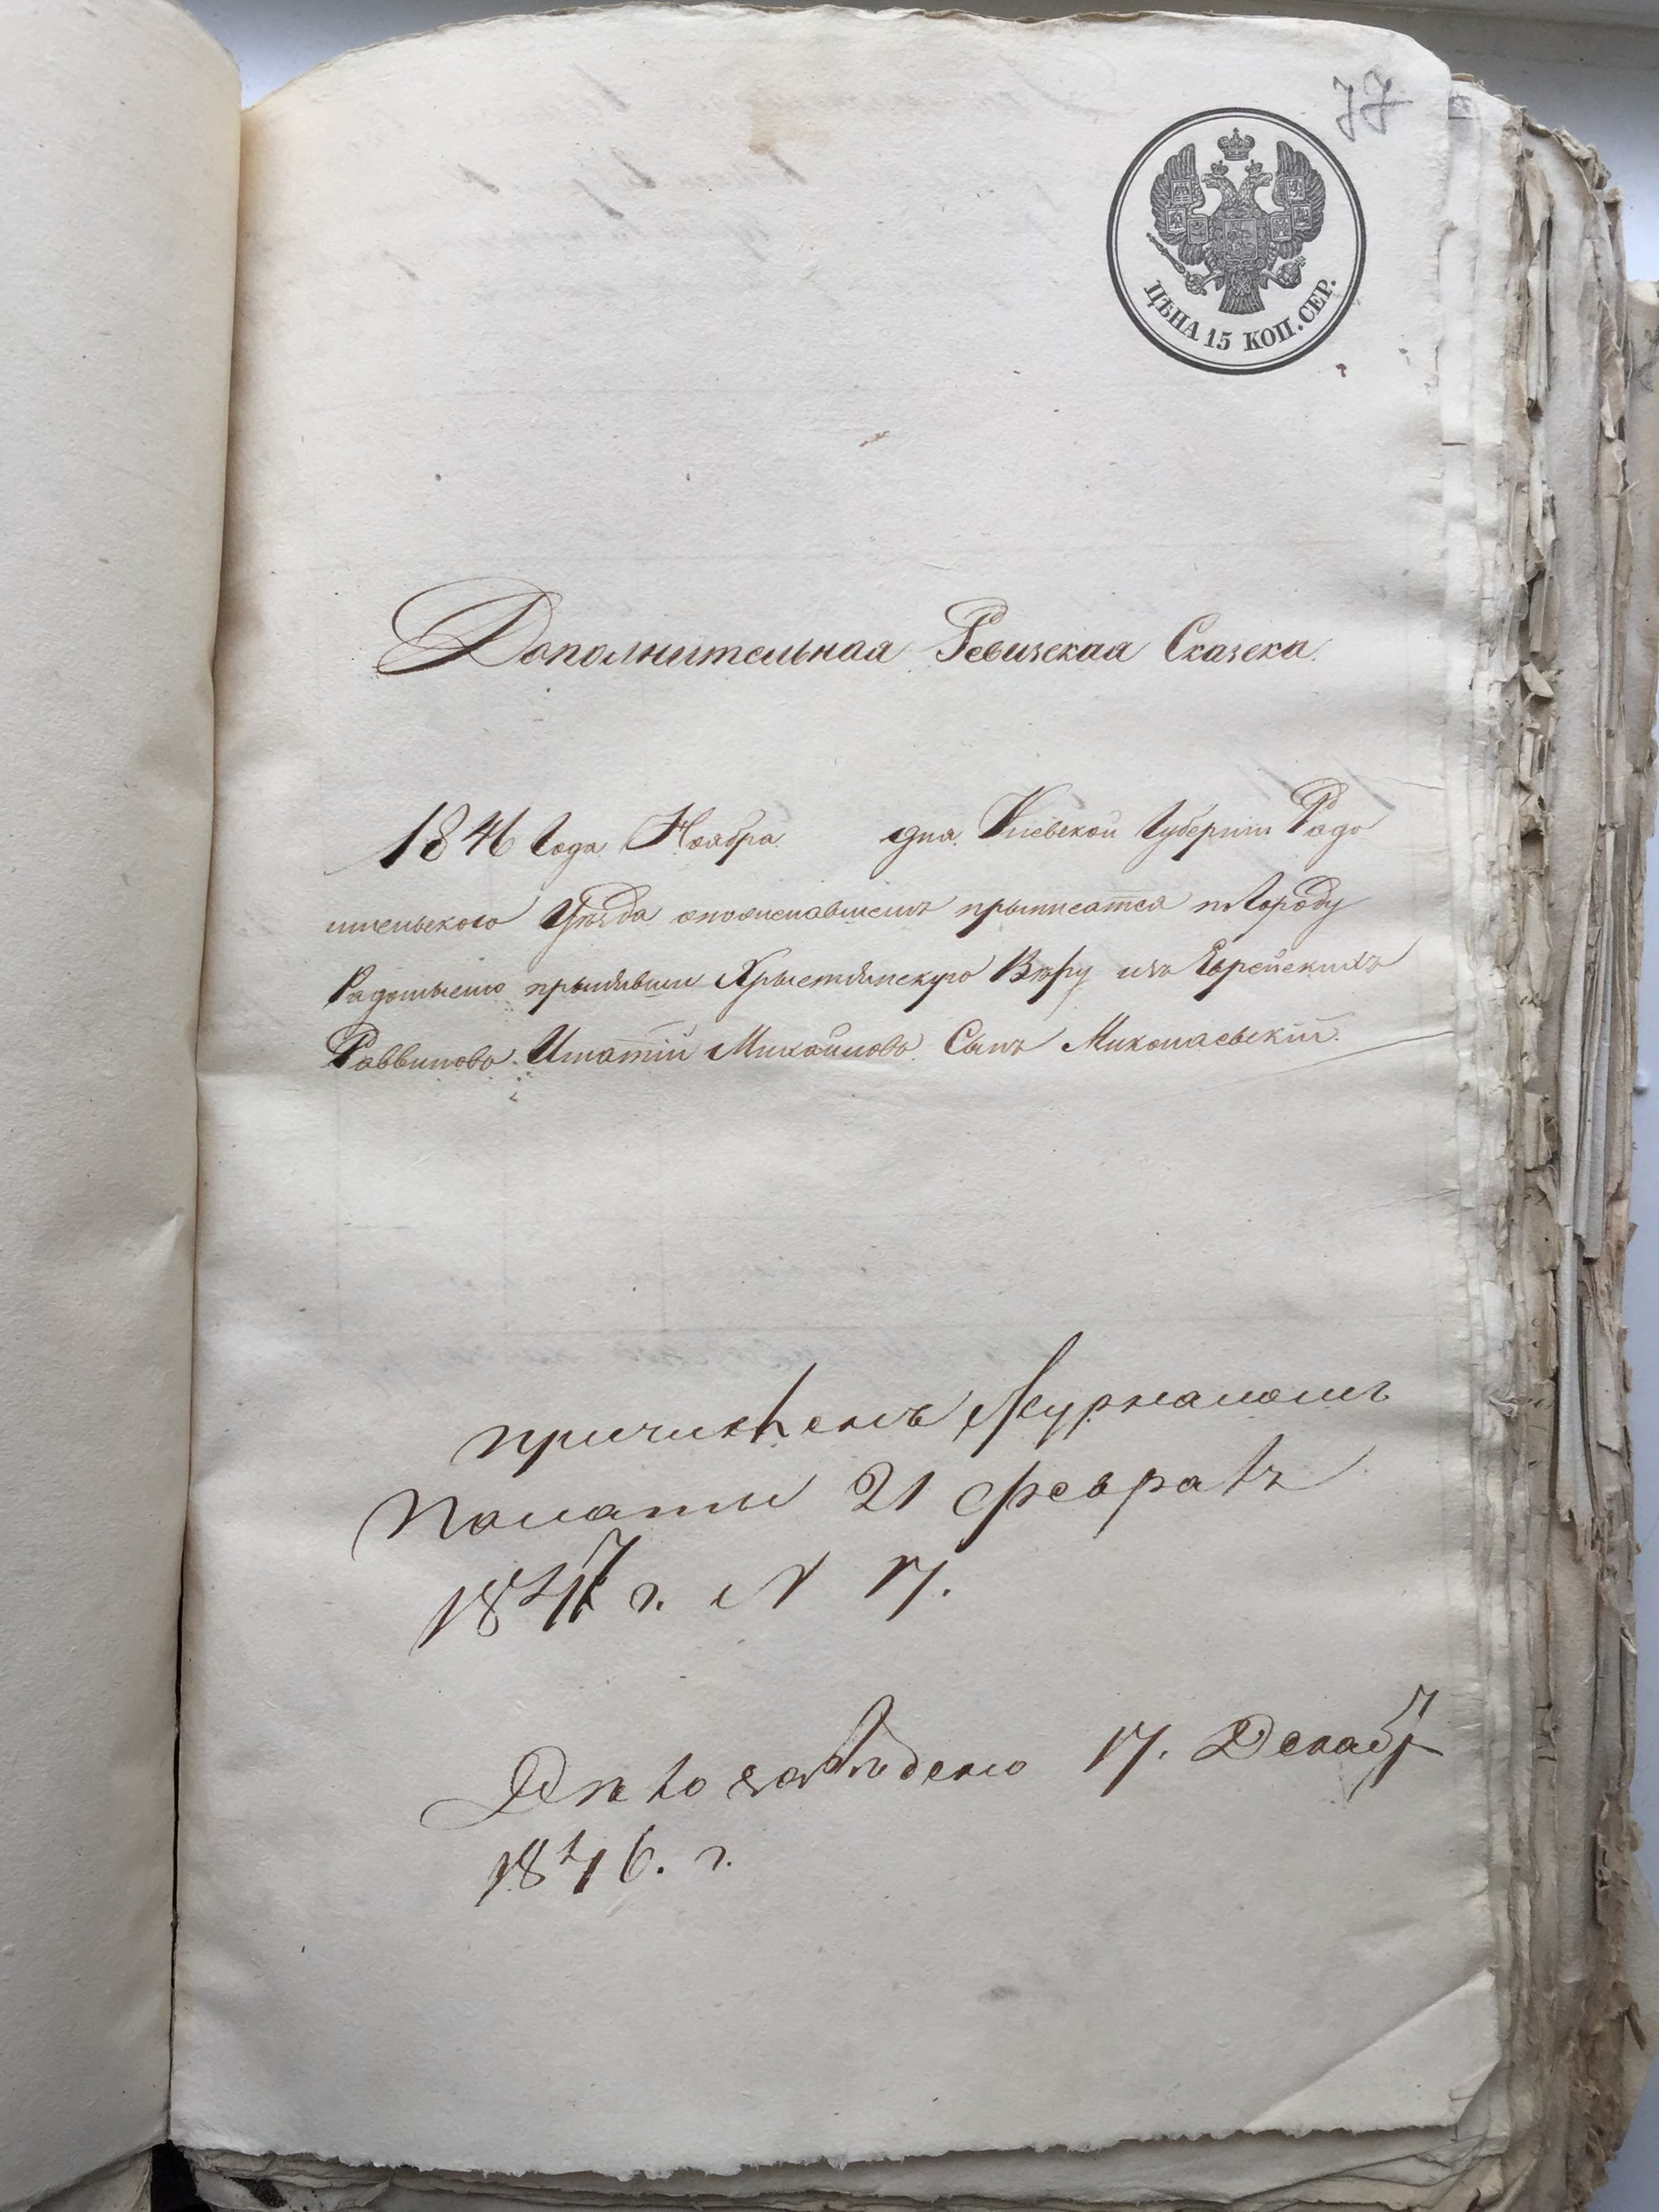 77
ЦѢНА 15 КОП. СЕР.
Дополнительная Ревизская Сказка.
1846 Года Ноября дня. Кіевской Губерніи Радо
мысльского Уѣзда опожелавшемъ прыписатся къ Городу
Радомыслю прынявши Хрыстіянскую Вѣру изъ Еврейскихъ
Раввиновъ. Игнатій Михайловъ Сынъ Миколаевскій.
причисленъ Журналомъ
Палаты 21 Февраля
1847 г. N 17.
Дѣло заведено 17. Декабр
1846. г.